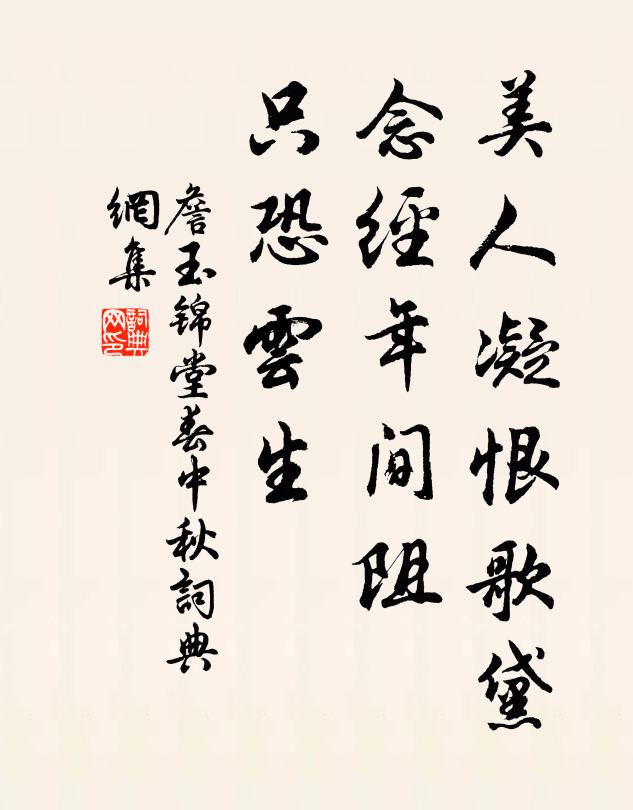 美人凝恨歌黛
念經年间阻
只恐雲生
詹玉锦堂春中秋詞典
網集
詞典
网印